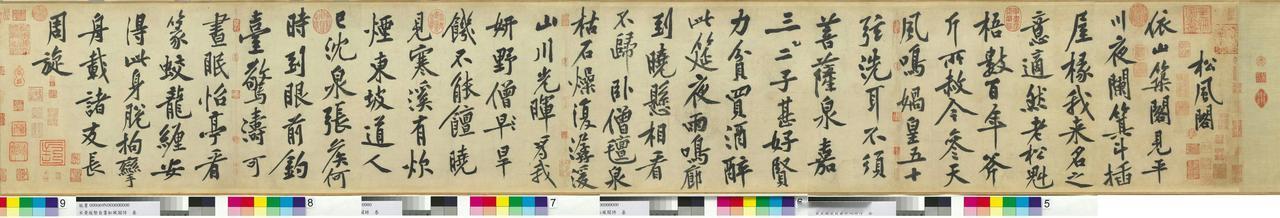 松風閣
依山築閣見平
川夜闌箕斗插
屋椽我來名之
意適然老松魁
梧數百年斧
斤所赦今參天
風鳴媧皇五十
弦洗耳不須
菩薩泉嘉
三二子甚好賢
力貧買酒醉
此筵夜雨鳴廊
到曉懸相看
不歸臥僧氈泉
枯石燥復潺湲
山川光暉為我
妍野僧早旱
饑不能饘曉
見寒溪有炊
煙東坡道人
已沈泉張侯何
時到眼前釣
臺驚濤可
晝眠怡亭看
篆蛟龍纏安
得此身脫拘攣
舟載諸友長
周旋
9
8
7
6
5